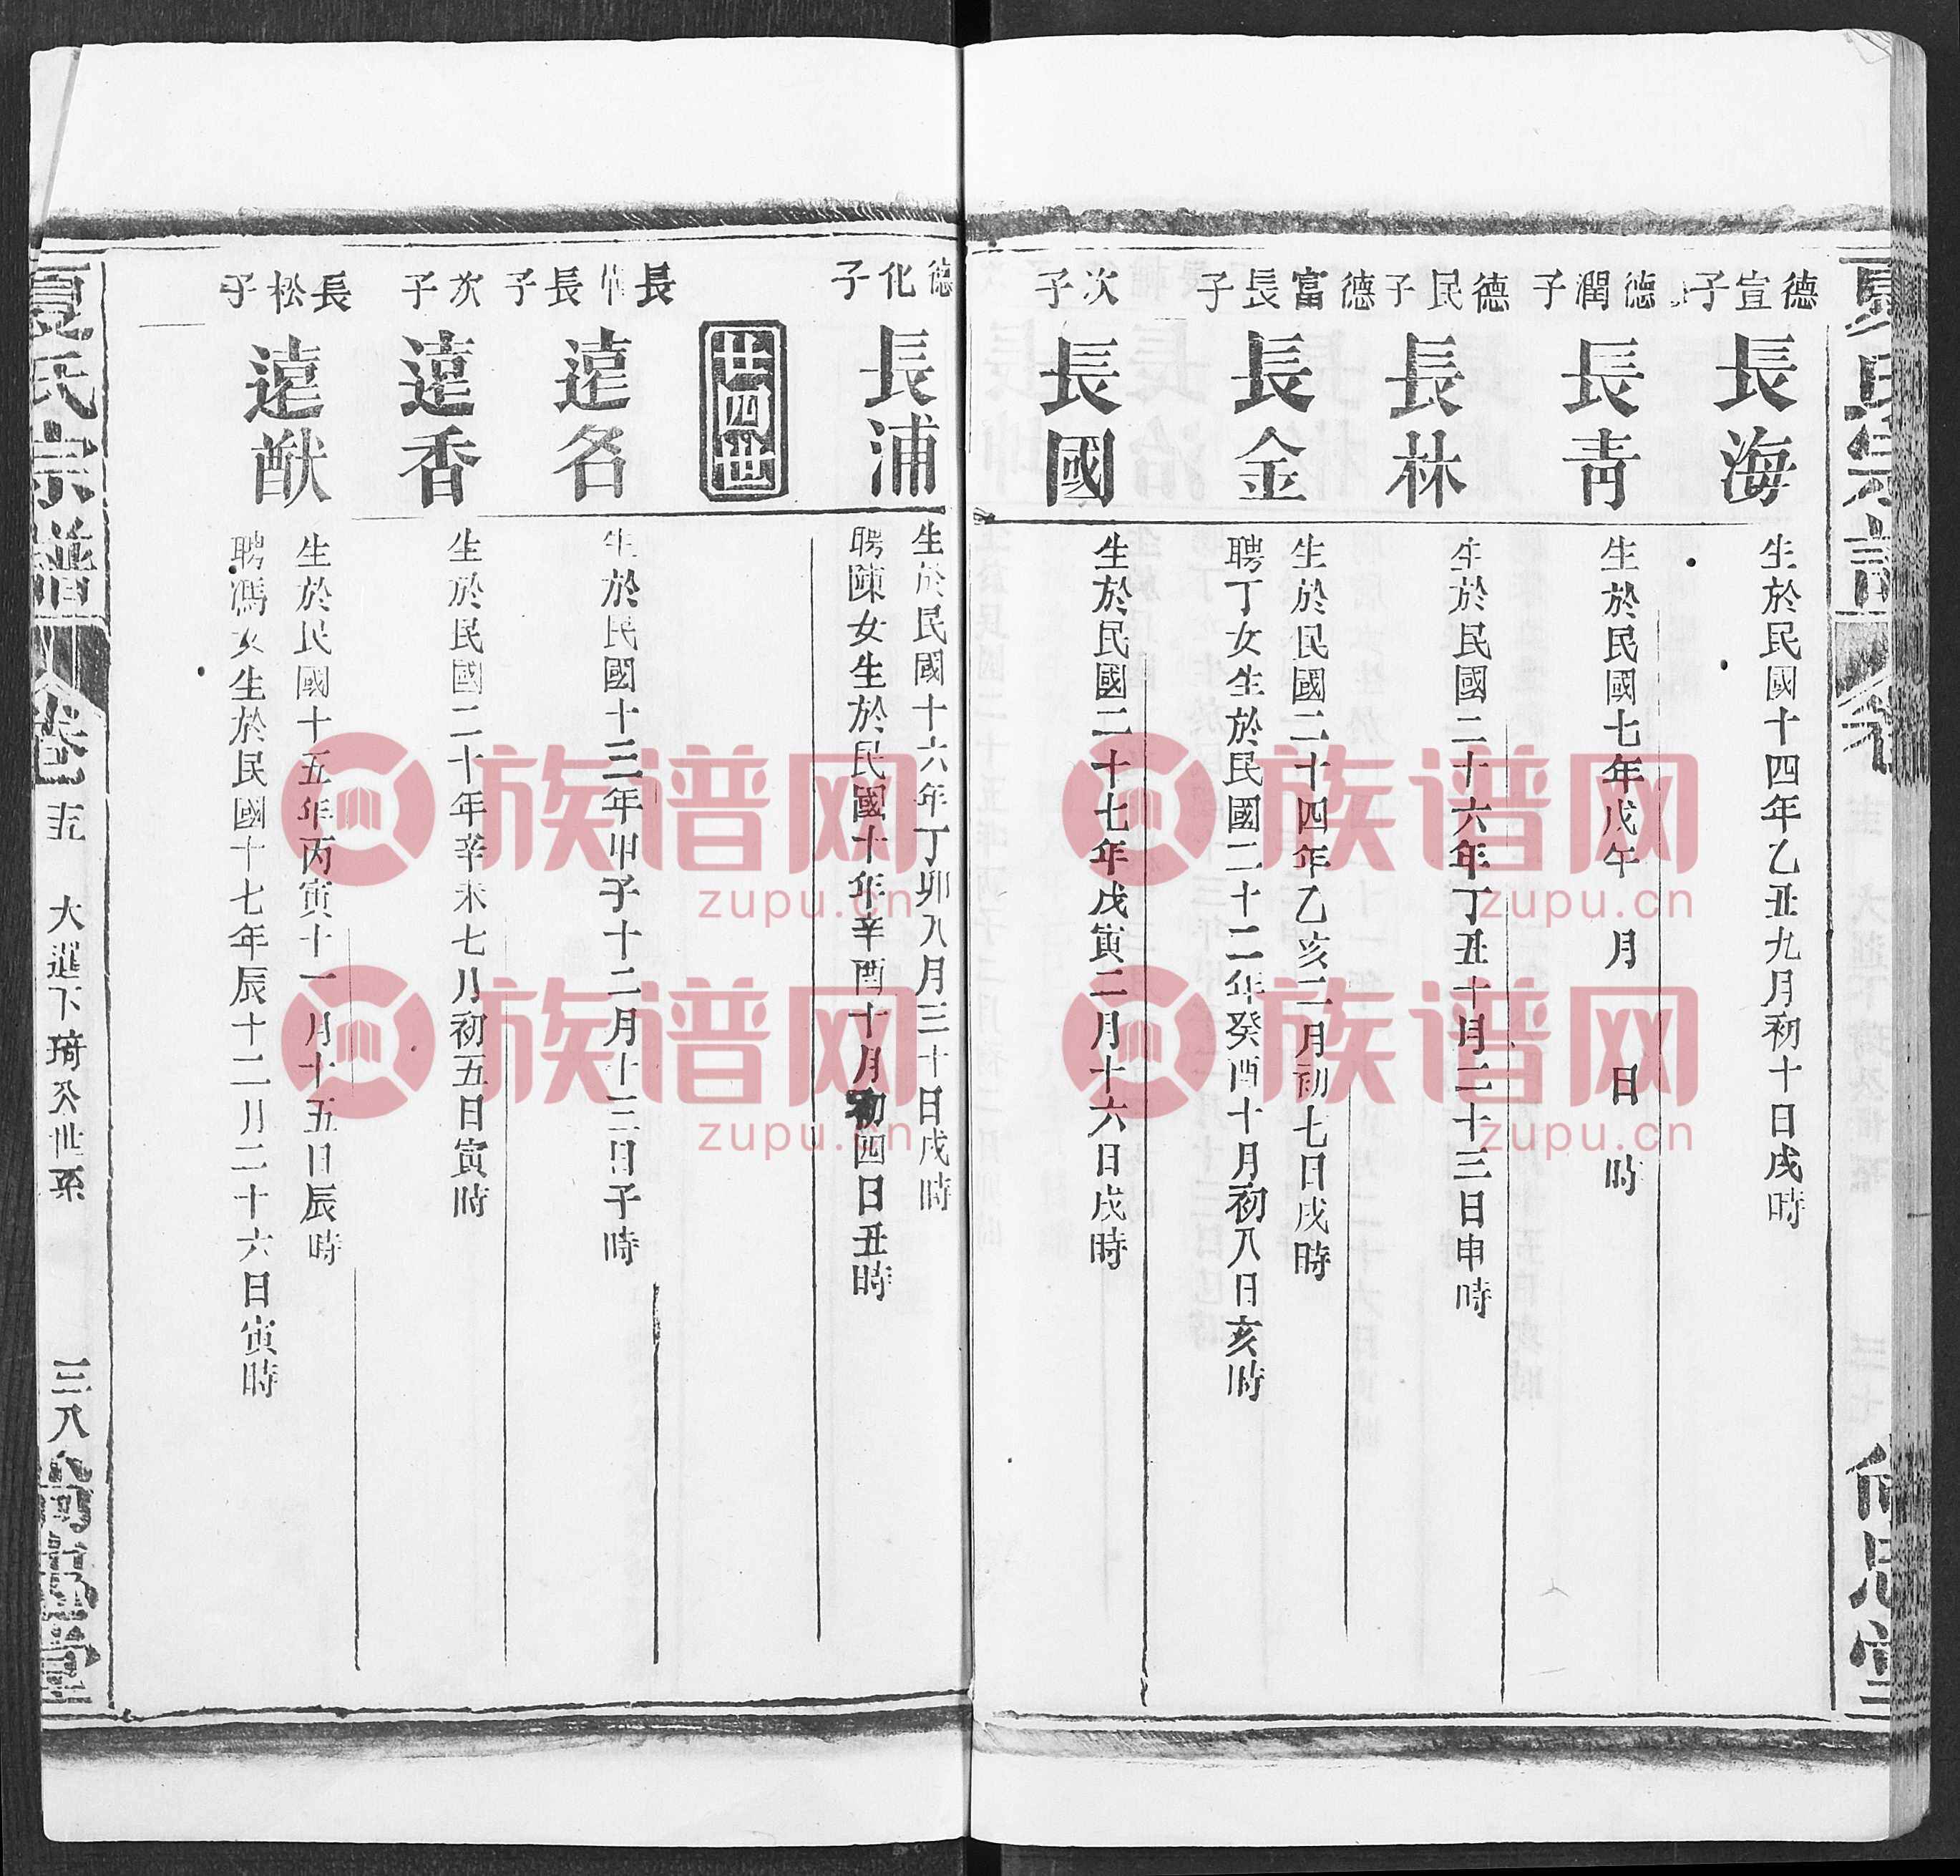 夏氏宗譜
卷
尙思堂
德宣子
長海
生於民國十四年乙丑九月初十日戌時
德潤子
長青
生於民國七年戊午 月 日 時
德民子
長林
生於民國二十六年丁丑十月二十三日申時
德富長子
長金
生於民國二十四年乙亥二月初七日戌時
聘丁女生於民國二十二年癸酉十月初八日亥時
次子
長國
生於民國二十七年戊寅二月十六日戌時
德化子
長浦
生於民國十六年丁卯八月三十日戌時
聘陳女生於民國十年辛酉十月初四日丑時
廿四世
長 長子
遠名
生於民國十三年甲子十二月十三日子時
次子
遠香
生於民國二十年辛未七月初五日寅時
長松子
遠猷
生於民國十五年丙寅十一月十五日辰時
聘馮女生於民國十七年辰十二月二十六日寅時
夏氏宗譜
卷五
大選下琦公世系
三八
尙思堂
族谱网
zupu.cn
族谱网
zupu.cn
族谱网
zupu.cn
族谱网
zupu.cn